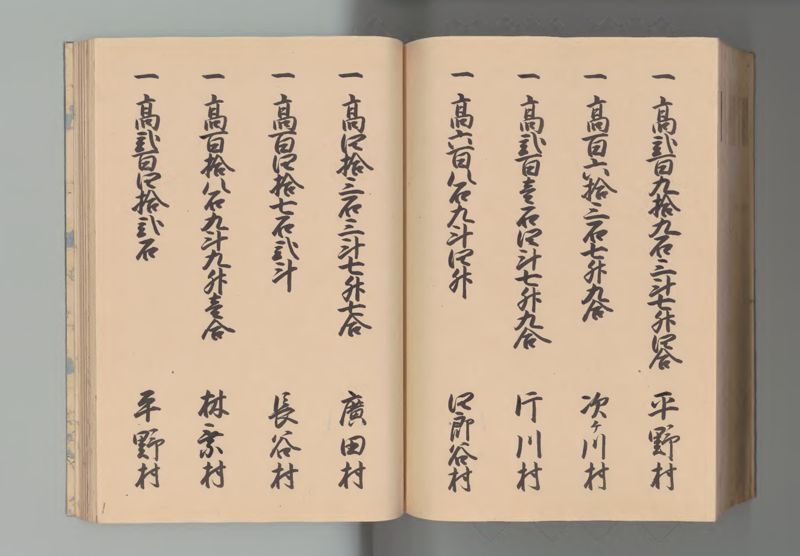 一 高弐百九拾九石三斗七升四合 平野村
一 高百六拾三石七升九合 次ケ川村
一 高弐百壱石四斗七升九合 片川村
一 高六百八石九斗四升 四郎谷村
一 高四拾三石三斗七升七合 廣田村
一 高百四拾七石弐斗 長谷村
一 高百拾八石九斗九升壱合 林 村
一 高弐百四拾弐石 平野村